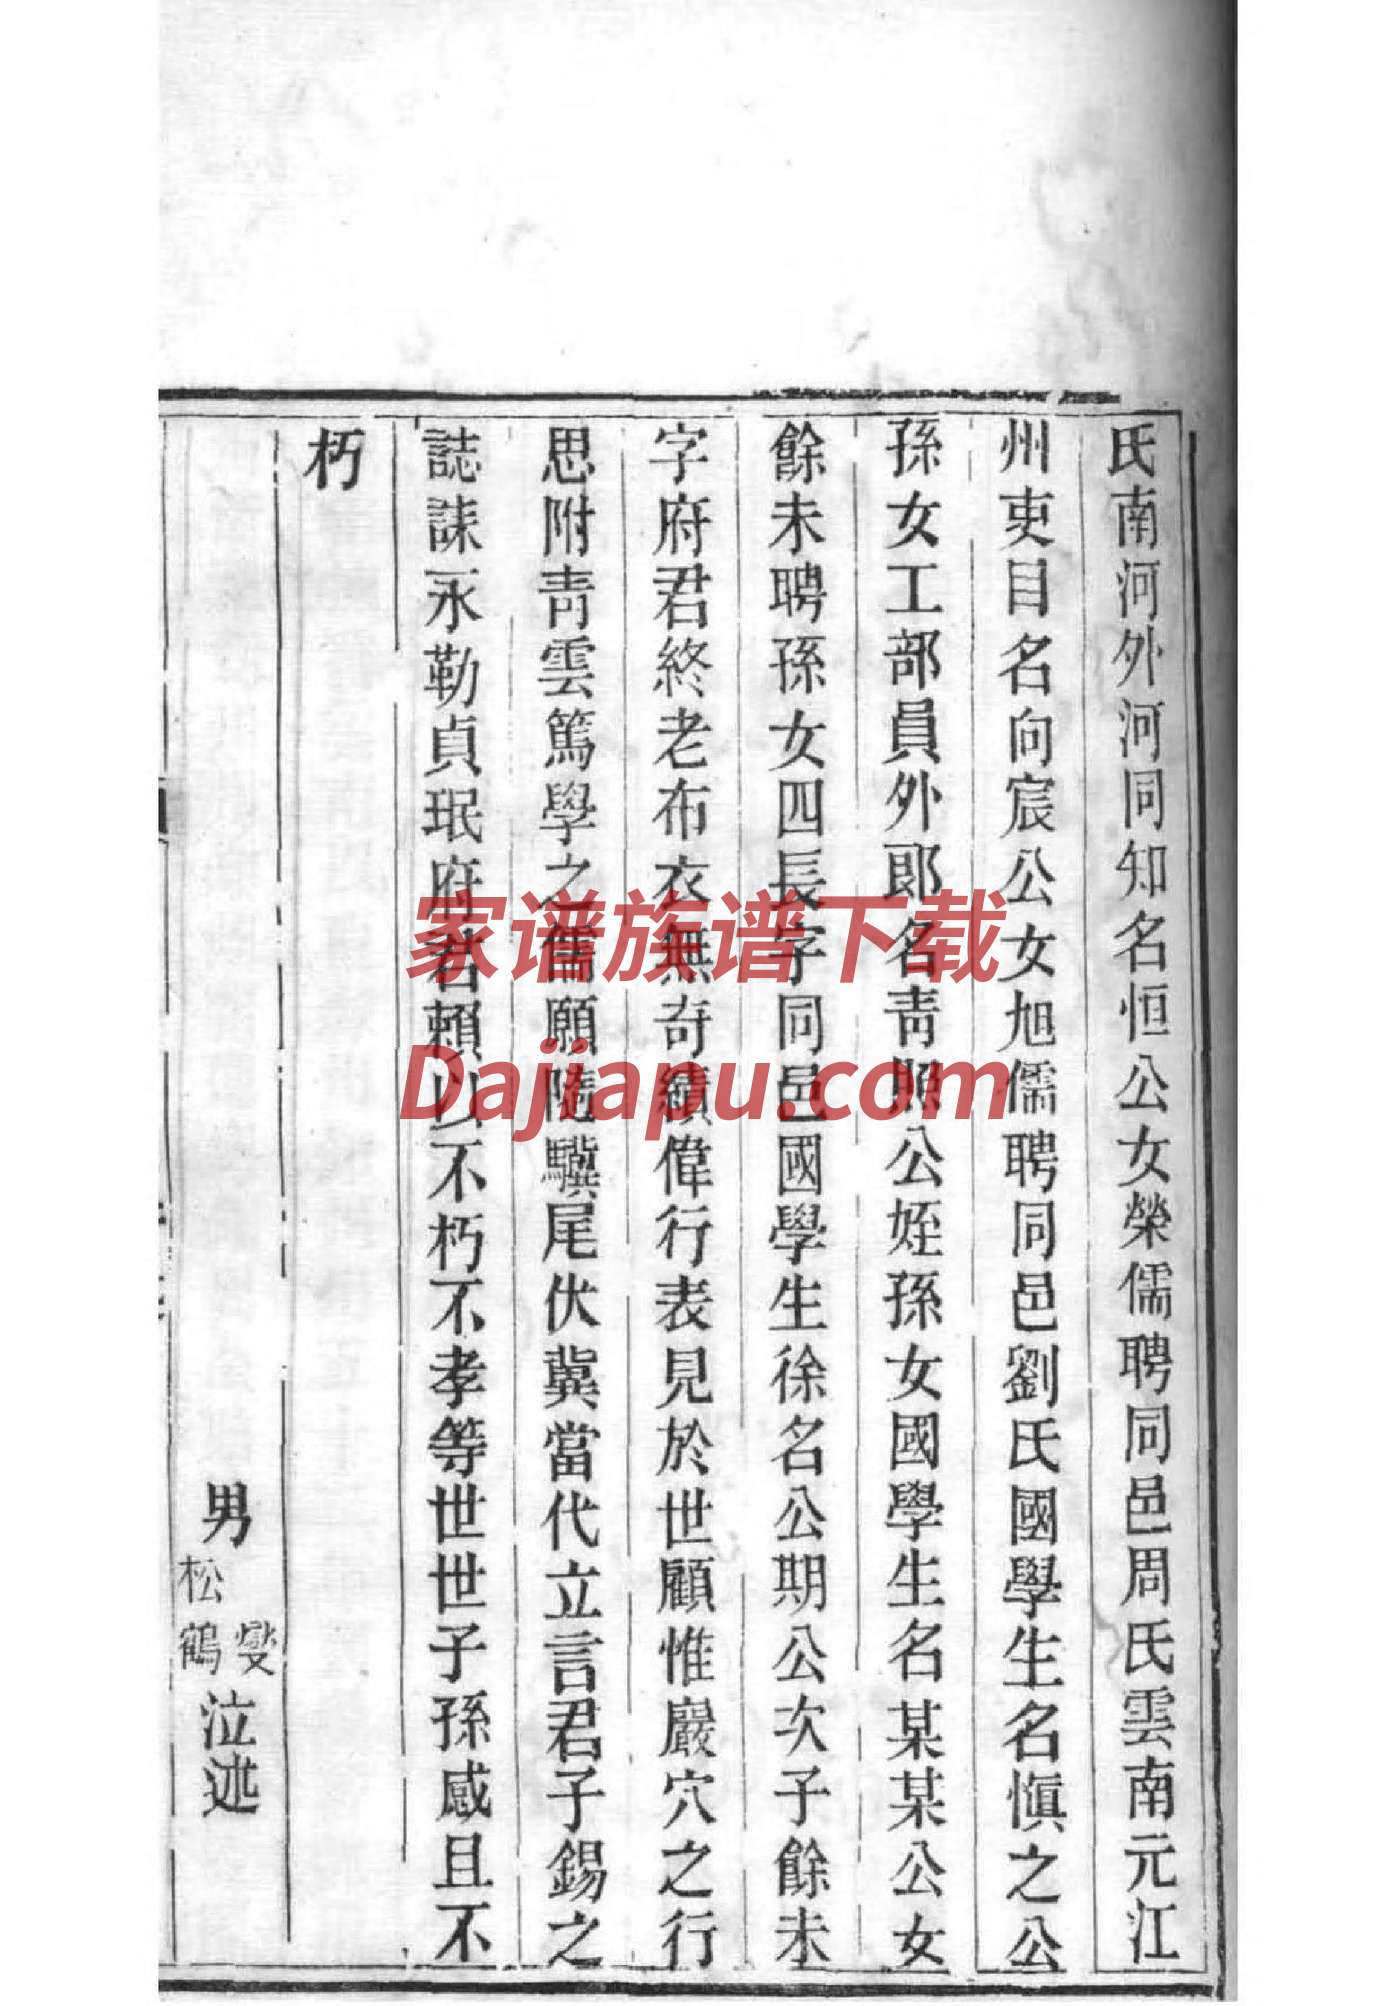 氏南河外河同知名恒公女榮儒聘同邑周氏雲南元江
州吏目名向宸公女旭儒聘同邑劉氏國學生名慎之公
孫女工部員外郎名青照公姪孫女國學生名某某公女
餘未聘孫女四長字同邑國學生徐名公期公次子餘未
字府君終老布衣無奇績偉行表見於世顧惟巖穴之行
思附青雲篤學之儒願隨驥尾伏冀當代立言君子錫之
誌誄永勒貞珉府君賴以不朽不孝等世世子孫感且不
朽
男燮松鶴泣述
家谱族谱下载
Dajiapu.com